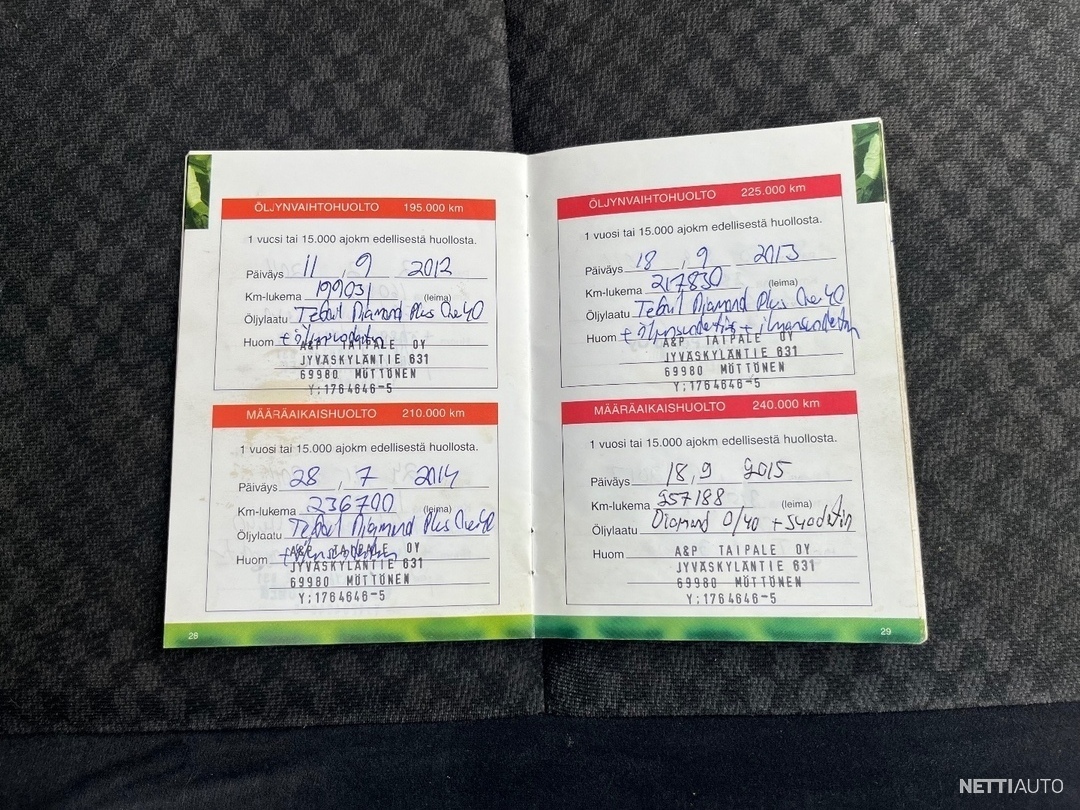 ÖLJYNVAIHTOHUOLTO 195.000 km
1 vuosi tai 15.000 ajokm edellisestä huollosta.
Päiväys 11 , 9 2012
Km-lukema 199031 (leima)
Öljylaatu Teboil Diamond Plus
Huom + öljynsuodatin
A&P TAIPALE OY
JYVÄSKYLÄNTIE 631
69980 MÖTTÖNEN
Y:1764646-5
MÄÄRÄAIKAISHUOLTO 210.000 km
1 vuosi tai 15.000 ajokm edellisestä huollosta.
Päiväys 28 , 7 2014
Km-lukema 236700 (leima)
Öljylaatu Teboil Diamond Plus
Huom + öljynsuodatin
A&P TAIPALE OY
JYVÄSKYLÄNTIE 631
69980 MÖTTÖNEN
Y:1764646-5
28
ÖLJYNVAIHTOHUOLTO 225.000 km
1 vuosi tai 15.000 ajokm edellisestä huollosta.
Päiväys 18 , 9 2013
Km-lukema 217830 (leima)
Öljylaatu Teboil Diamond Plus
Huom + öljynsuodatin + ilmansuodatin
A&P TAIPALE OY
JYVÄSKYLÄNTIE 631
69980 MÖTTÖNEN
Y:1764646-5
MÄÄRÄAIKAISHUOLTO 240.000 km
1 vuosi tai 15.000 ajokm edellisestä huollosta.
Päiväys 18,9 2015
Km-lukema 257188 (leima)
Öljylaatu Diamond 0/40 + suodatin
Huom
A&P TAIPALE OY
JYVÄSKYLÄNTIE 631
69980 MÖTTÖNEN
Y:1764646-5
29
NETTIAUTO